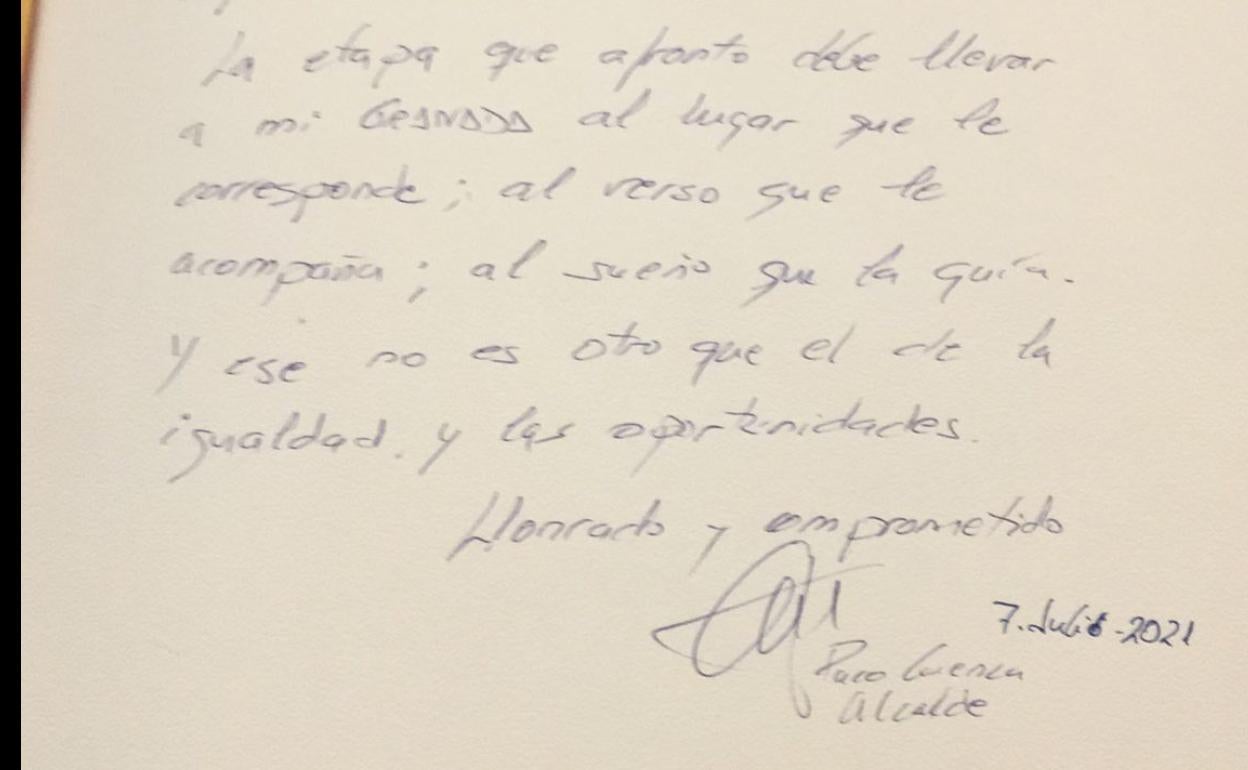 La etapa que afronto debe llevar
a mi GRANADA al lugar que le
corresponde; al verso que le
acompaña; al sueño que la guía.
Y ese no es otro que el de la
igualdad. y las oportunidades.
Honrado y comprometido
7. Julio - 2021
Paco Cuenca
Alcalde